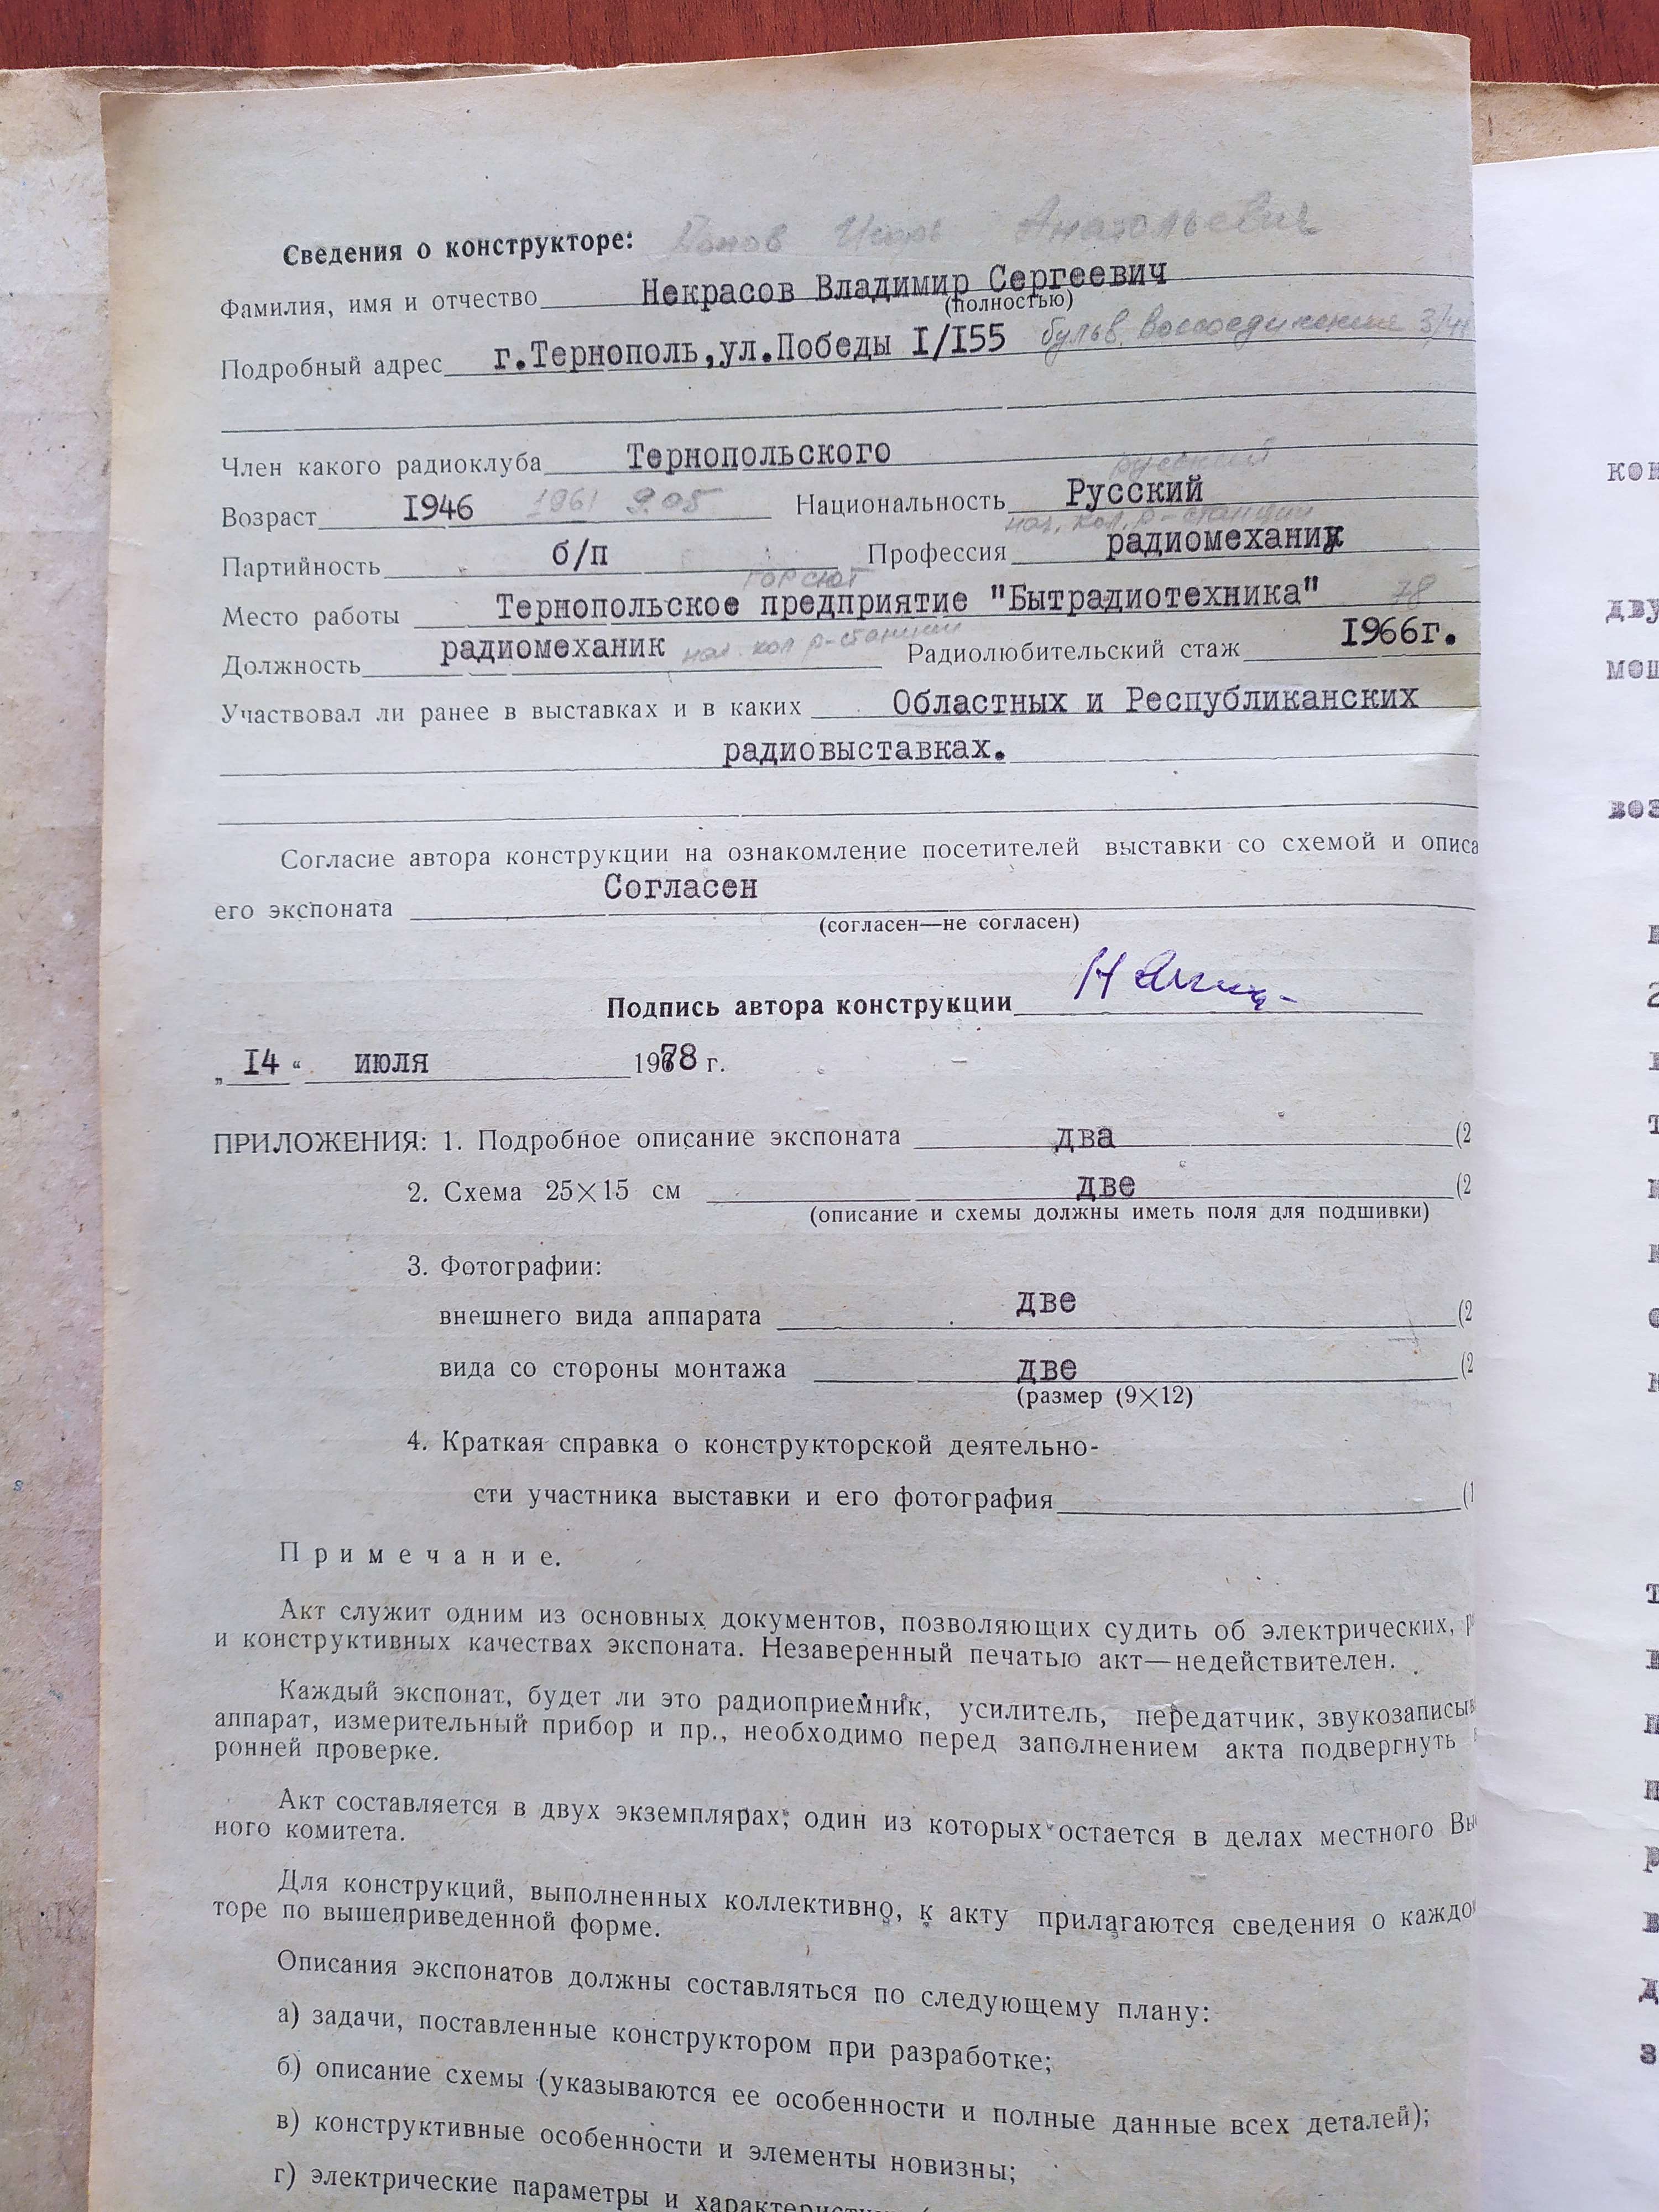 Сведения о конструкторе: Попов Игорь Анатольевич
Фамилия, имя и отчество Некрасов Владимир Сергеевич
(полностью)
Подробный адрес г.Тернополь,ул.Победы I/I55 бульв. Воссоединения 3/
Член какого радиоклуба Тернопольского
русский
Возраст I946 1961 9.05 Национальность Русский
нач. кол. р-станции
Партийность б/п Профессия радиомеханик
горсют
Место работы Тернопольское предприятие "Бытрадиотехника" 78
Должность радиомеханик нач. кол р-станции Радиолюбительский стаж I966г.
Участвовал ли ранее в выставках и в каких Областных и Республиканских
радиовыставках.
Согласие автора конструкции на ознакомление посетителей выставки со схемой и описа
его экспоната Согласен
(согласен—не согласен)
Подпись автора конструкции
„I4“ июля 1978 г.
ПРИЛОЖЕНИЯ: 1. Подробное описание экспоната два (2
2. Схема 25×15 см две (2
(описание и схемы должны иметь поля для подшивки)
3. Фотографии:
внешнего вида аппарата две (2
вида со стороны монтажа две (2
(размер (9×12)
4. Краткая справка о конструкторской деятельно-
сти участника выставки и его фотография (1
Примечание.
Акт служит одним из основных документов, позволяющих судить об электрических, р
и конструктивных качествах экспоната. Незаверенный печатью акт—недействителен.
Каждый экспонат, будет ли это радиоприемник, усилитель, передатчик, звукозаписыв
аппарат, измерительный прибор и пр., необходимо перед заполнением акта подвергнуть
ронней проверке.
Акт составляется в двух экземплярах, один из которых остается в делах местного Вы
ного комитета.
Для конструкций, выполненных коллективно, к акту прилагаются сведения о каждо
торе по вышеприведенной форме.
Описания экспонатов должны составляться по следующему плану:
а) задачи, поставленные конструктором при разработке;
б) описание схемы (указываются ее особенности и полные данные всех деталей);
в) конструктивные особенности и элементы новизны;
г) электрические параметры и
кон
дву
мощ
воз